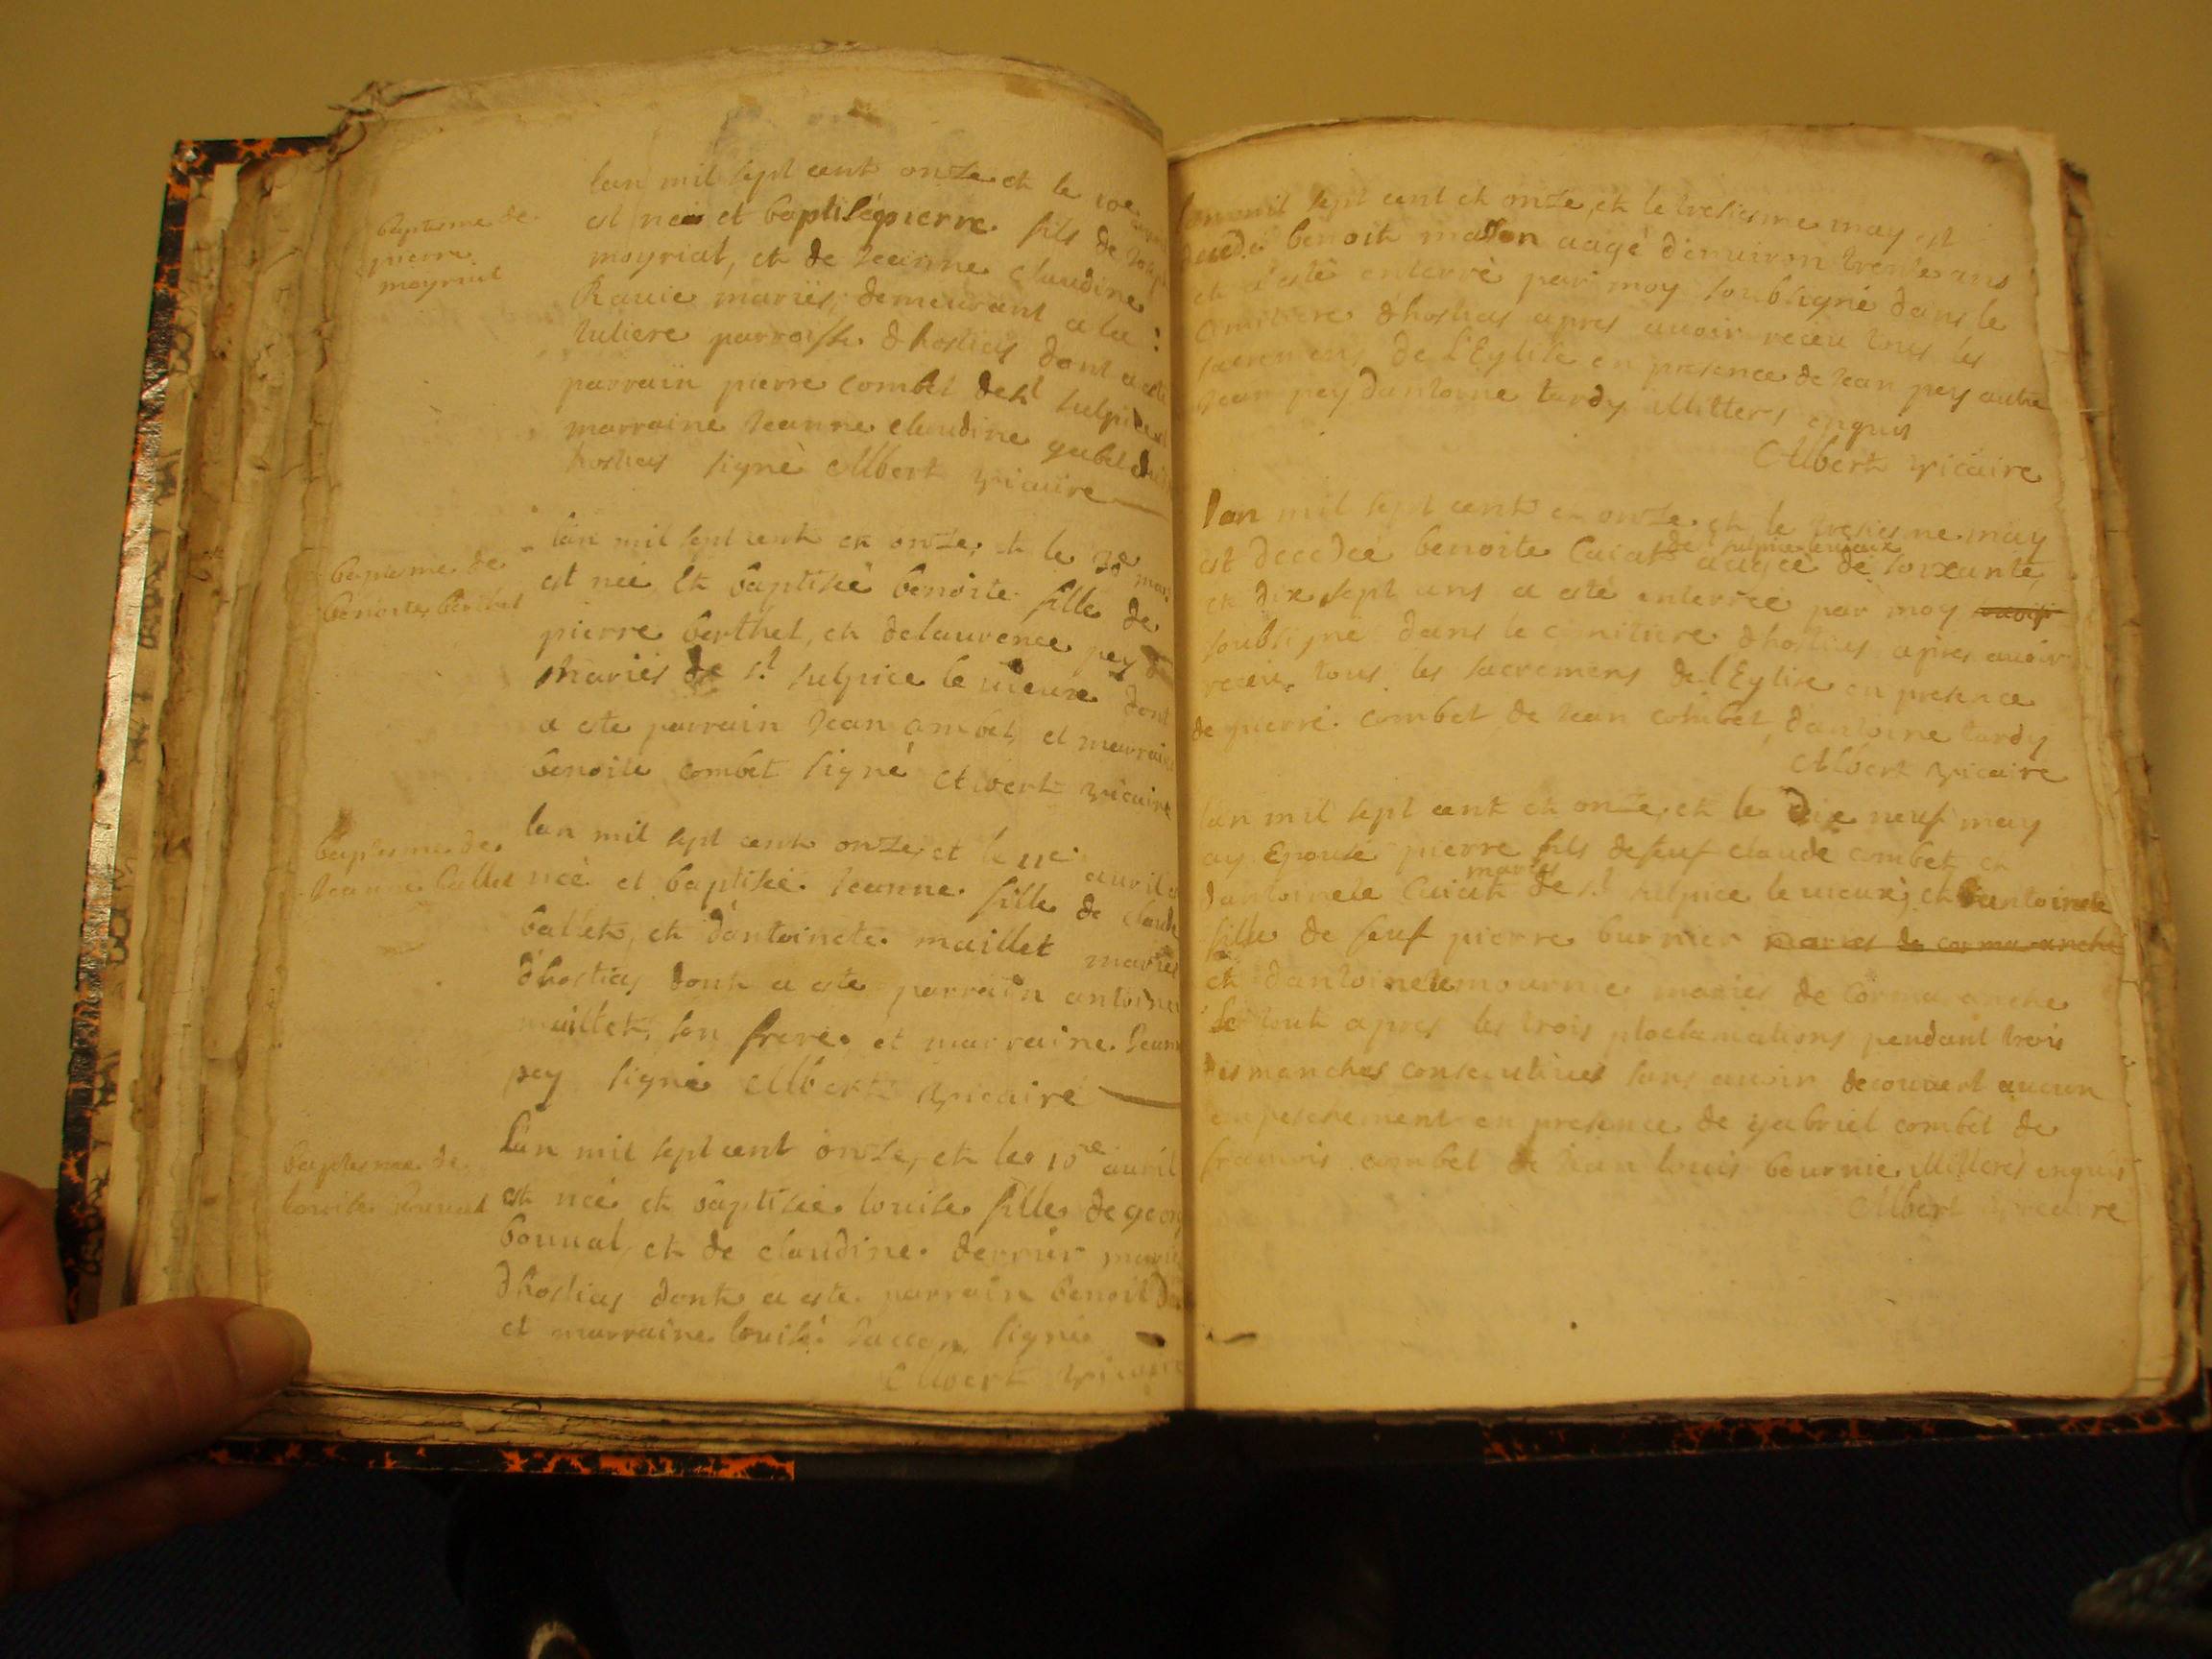 baptisme de
pierre
moyriat
lan mil sept cent onze et le 10e
est neé et baptisé pierre fils de
moyriat, et de Jeanne claudine
Rauie mariés, demeurant a la
tuliere parroisse dhosties dont a esté
parrain pierre combet de st sulpice et
marraine Jeanne claudine
hosties signé Albert vicaire
baptisme de
benoite berthet
lan mil sept cent et onze, et le
est neé et baptisé benoite fille de
pierre berthet, et de laurence pey
mariés de st sulpice le uieux dont
a esté parrain Jean combet, et marraine
benoite combet signé Albert vicaire
baptisme de
Jeanne ballet
lan mil sept cent onze, et le 11e auril
neé et baptiseé Jeanne fille de claude
ballet, et dantoinete maillet mariés
dhosties dont a esté parrain antoine
maillet, son frere et marraine Jeanne
pey signé Albert vicaire
baptisme de
louise bonnal
Lan mil sept cent onze, et le auril
est neé et baptiseé louise fille de
bonnal, et de claudine derrier mariés
dhosties dont a esté parrain benoit
et marraine louise signé
Albert vicaire
lan mil sept cent et onze, et le tresiesme may est
decedé benoit masson aagé denuiron trente ans
et a esté enterré par moy soubsigné dans le
cimitiere dhosties apres auoir receu tous les
sacremens de l'Eglise en presence de Jean pey autre
Jean pey dantoine tardy illitters enquis
Albert vicaire
lan mil sept cent et onze et le tresiesme may
est decedeé benoite Cuiat de st sulpice le uieux aageé de soixante
et dix sept ans a esté enterreé par moy
soubsigné dans le cimitiere dhosties apres auoir
receu tous les sacremens de l'Eglise en presence
de pierre combet de Jean combet, dantoine tardy
Albert vicaire
lan mil sept cent et onze, et le dix neuf may
ay Epousé pierre fils de feuf claude combet et
dantoinete Cuiat mariés de st sulpice le uieux, et antoinete
fille de feuf pierre burnier mariés de cormaranche
et dantoinete mournie mariés de Cormaranche
Le tout apres les trois ploclamations pendant trois
dismanches consecutiues sans auoir decouuert aucun
enpeschement en presence de gabriel combet de
francois combet de Jean louis bournie illiterés enquis
Albert vicaire